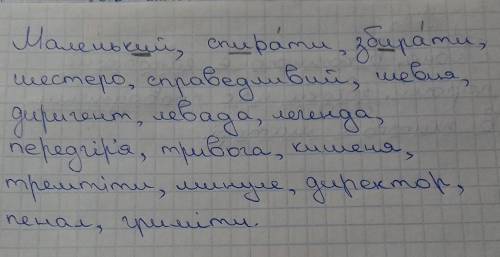 Маленький, спира́ти, збира́ти,
шестеро, справедливий, шевця,
диригент, левада, легенда,
передгір'я, тривога, кишеня,
тремтіти, минуле, директор,
пенал, гриміти.